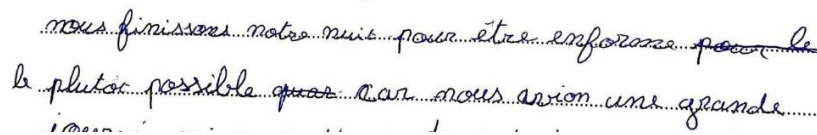 nous finissons notre nuit pour être enforme pour le
le plutot possible quar car nous avion une grande